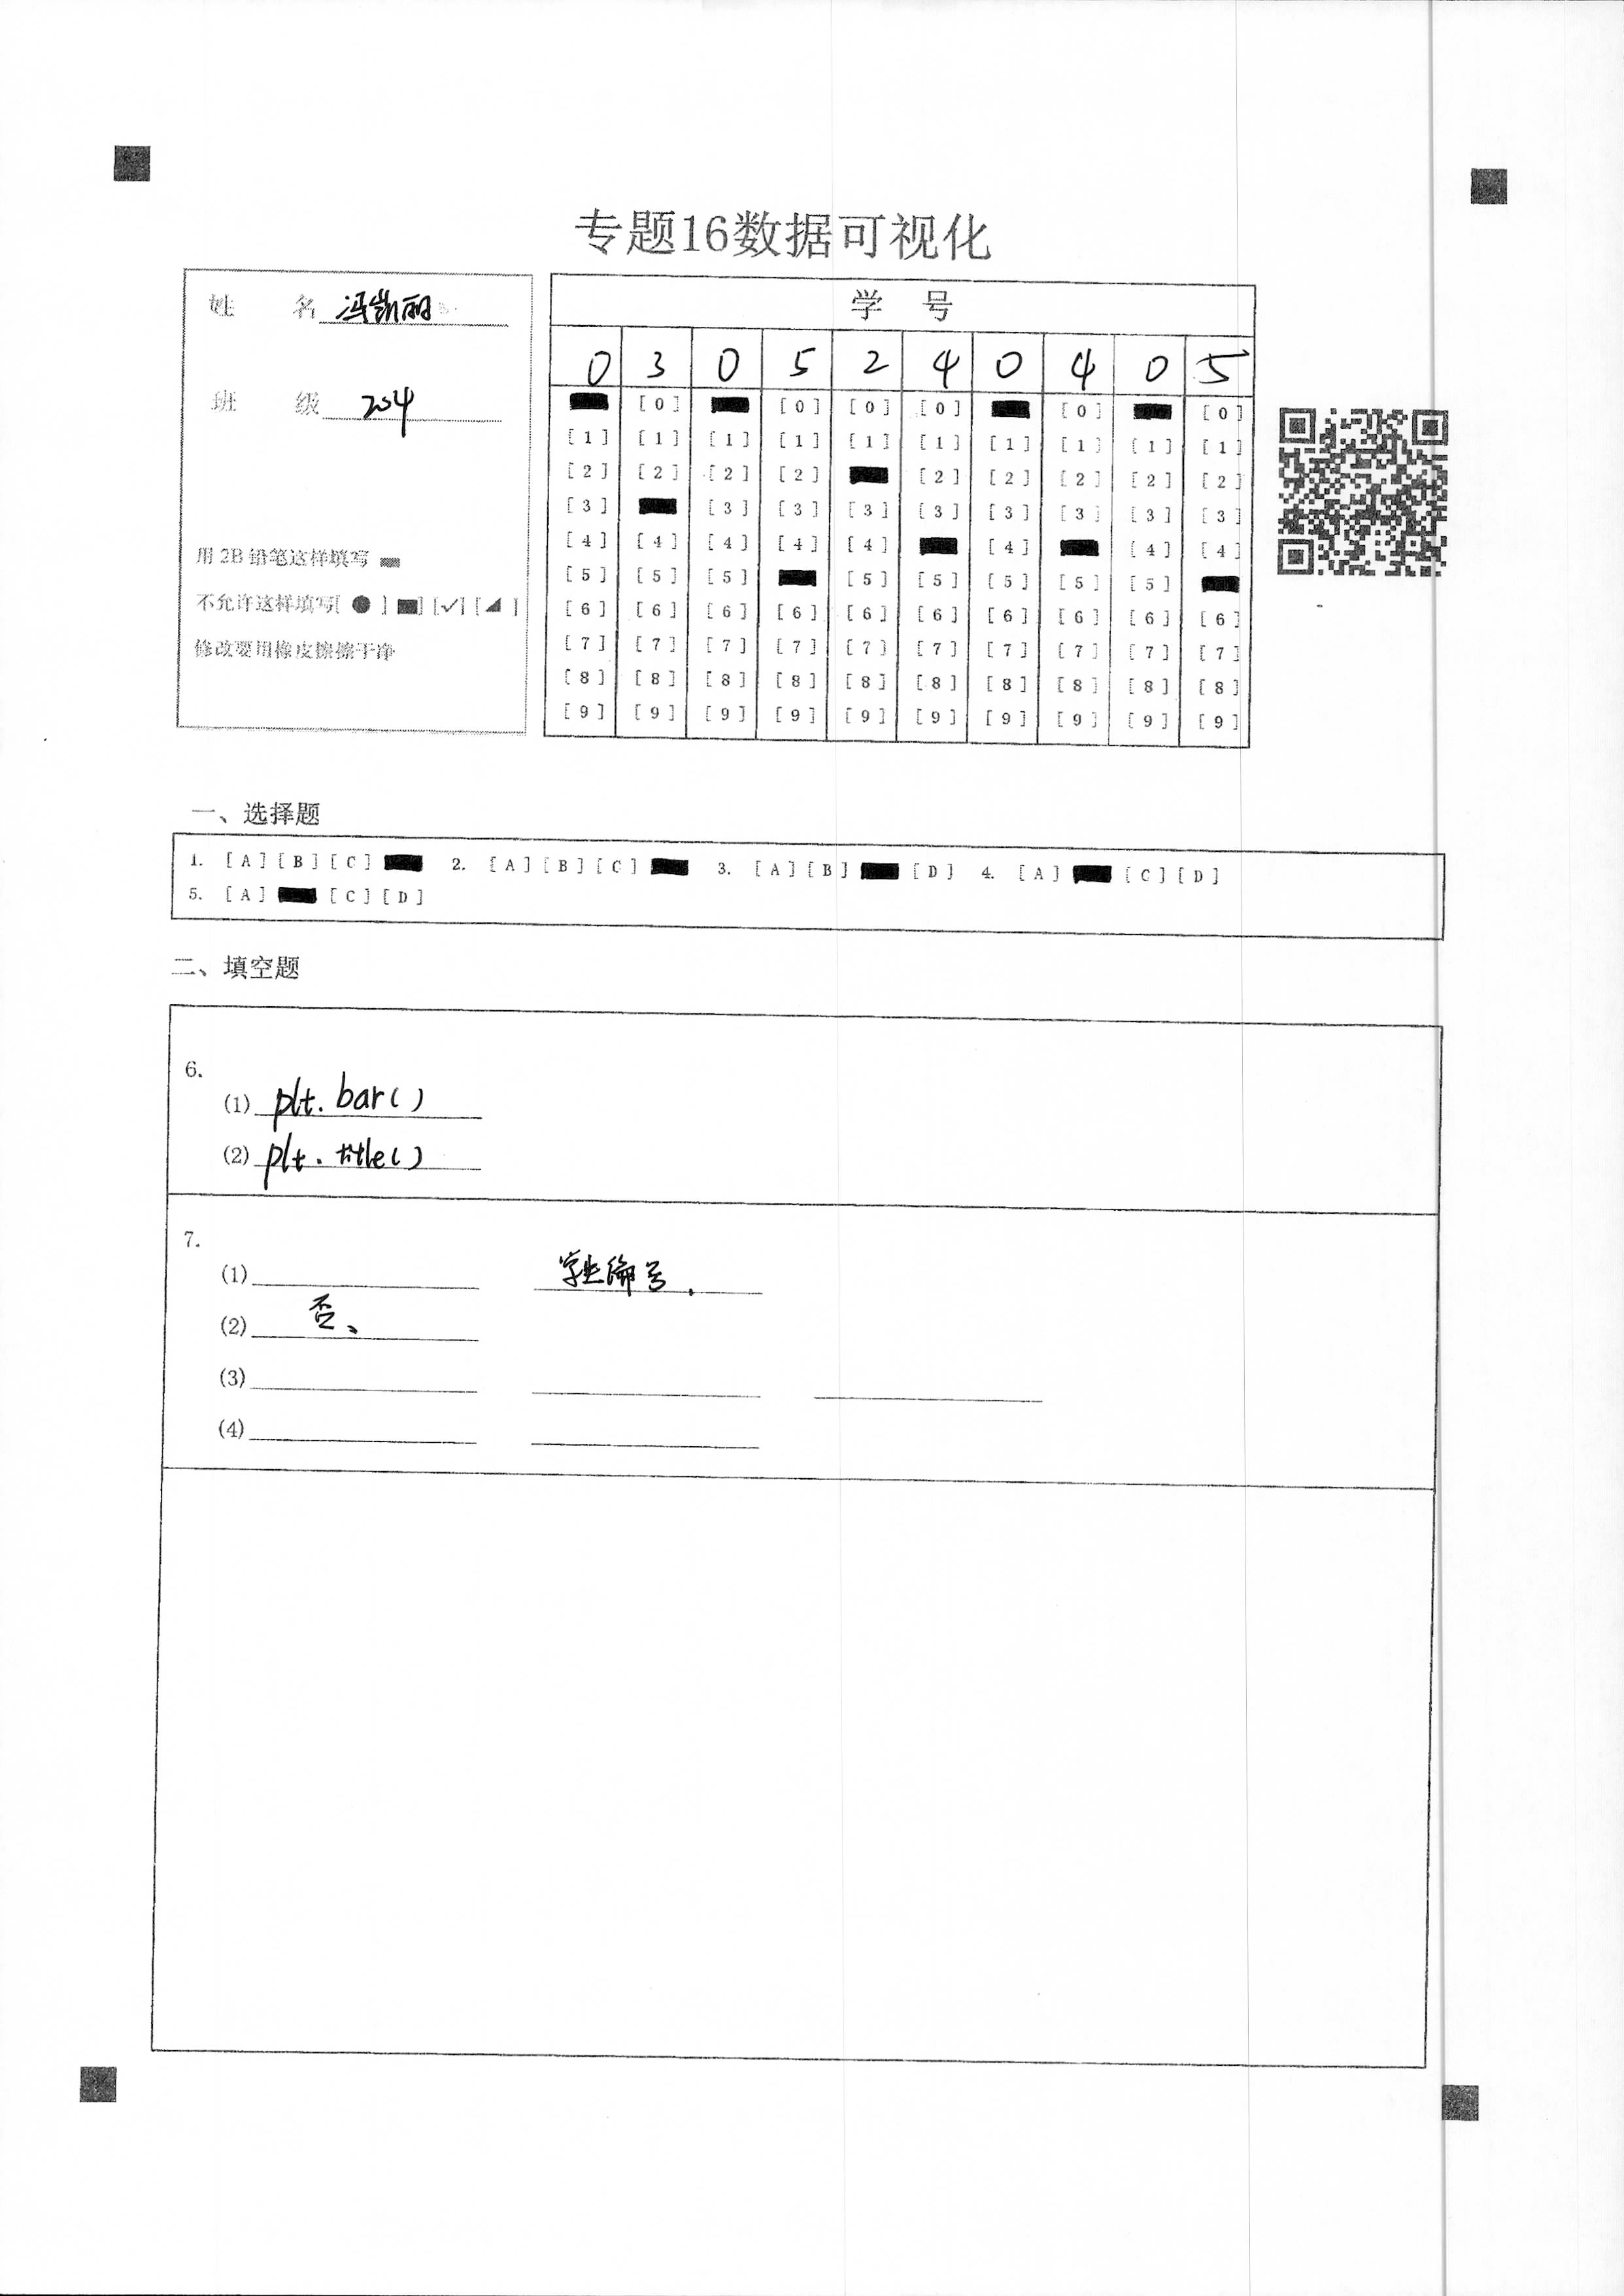 专题16数据可视化
姓 名 冯凯丽
班 级 204
用 2B 铅笔这样填写
不允许这样填写[ ● ] [■] [✓] [◢ ]
修改要用橡皮擦擦干净
学 号
0 3 0 5 2 4 0 4 0 5
[0] [0] [0] [0] [0] [0]
[1] [1] [1] [1] [1] [1] [1] [1] [1] [1]
[2] [2] [2] [2] [2] [2] [2] [2] [2]
[3] [3] [3] [3] [3] [3] [3] [3] [3]
[4] [4] [4] [4] [4] [4] [4] [4]
[5] [5] [5] [5] [5] [5] [5] [5]
[6] [6] [6] [6] [6] [6] [6] [6] [6] [6]
[7] [7] [7] [7] [7] [7] [7] [7] [7] [7]
[8] [8] [8] [8] [8] [8] [8] [8] [8] [8]
[9] [9] [9] [9] [9] [9] [9] [9] [9] [9]
一、选择题
1. [A] [B] [C] 2. [A] [B] [C] 3. [A] [B] [D] 4. [A] [C] [D]
5. [A] [C] [D]
二、填空题
6.
(1) plt. bar()
(2) plt. title()
7.
(1) 学生编号.
(2) 否、
(3)
(4)